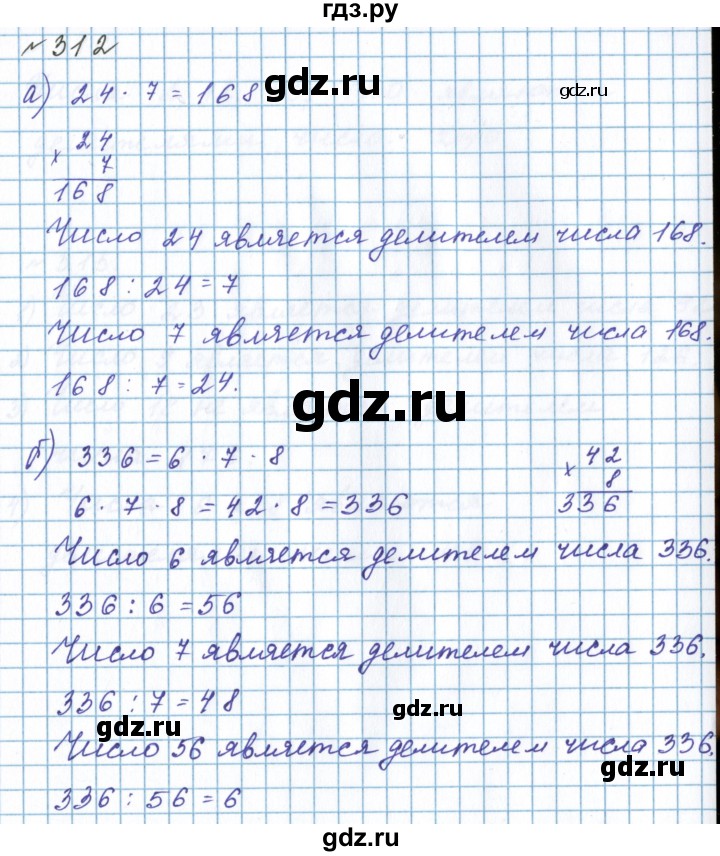 гдз.ру
№ 312
gdz.ru
gdz.ru
а) 24 · 7 = 168
24
× 7
168
Число 24 является делителем числа 168.
168 : 24 = 7
Число 7 является делителем числа 168.
168 : 7 = 24.
gdz.ru
б) 336 = 6 · 7 · 8
42
× 8
336
6 · 7 · 8 = 42 · 8 = 336
Число 6 является делителем числа 336.
336 : 6 = 56
Число 7 является делителем числа 336.
336 : 7 = 48
gdz.ru
gdz.ru
Число 56 является делителем числа 336.
gdz.ru
336 : 56 = 6
gdz.ru